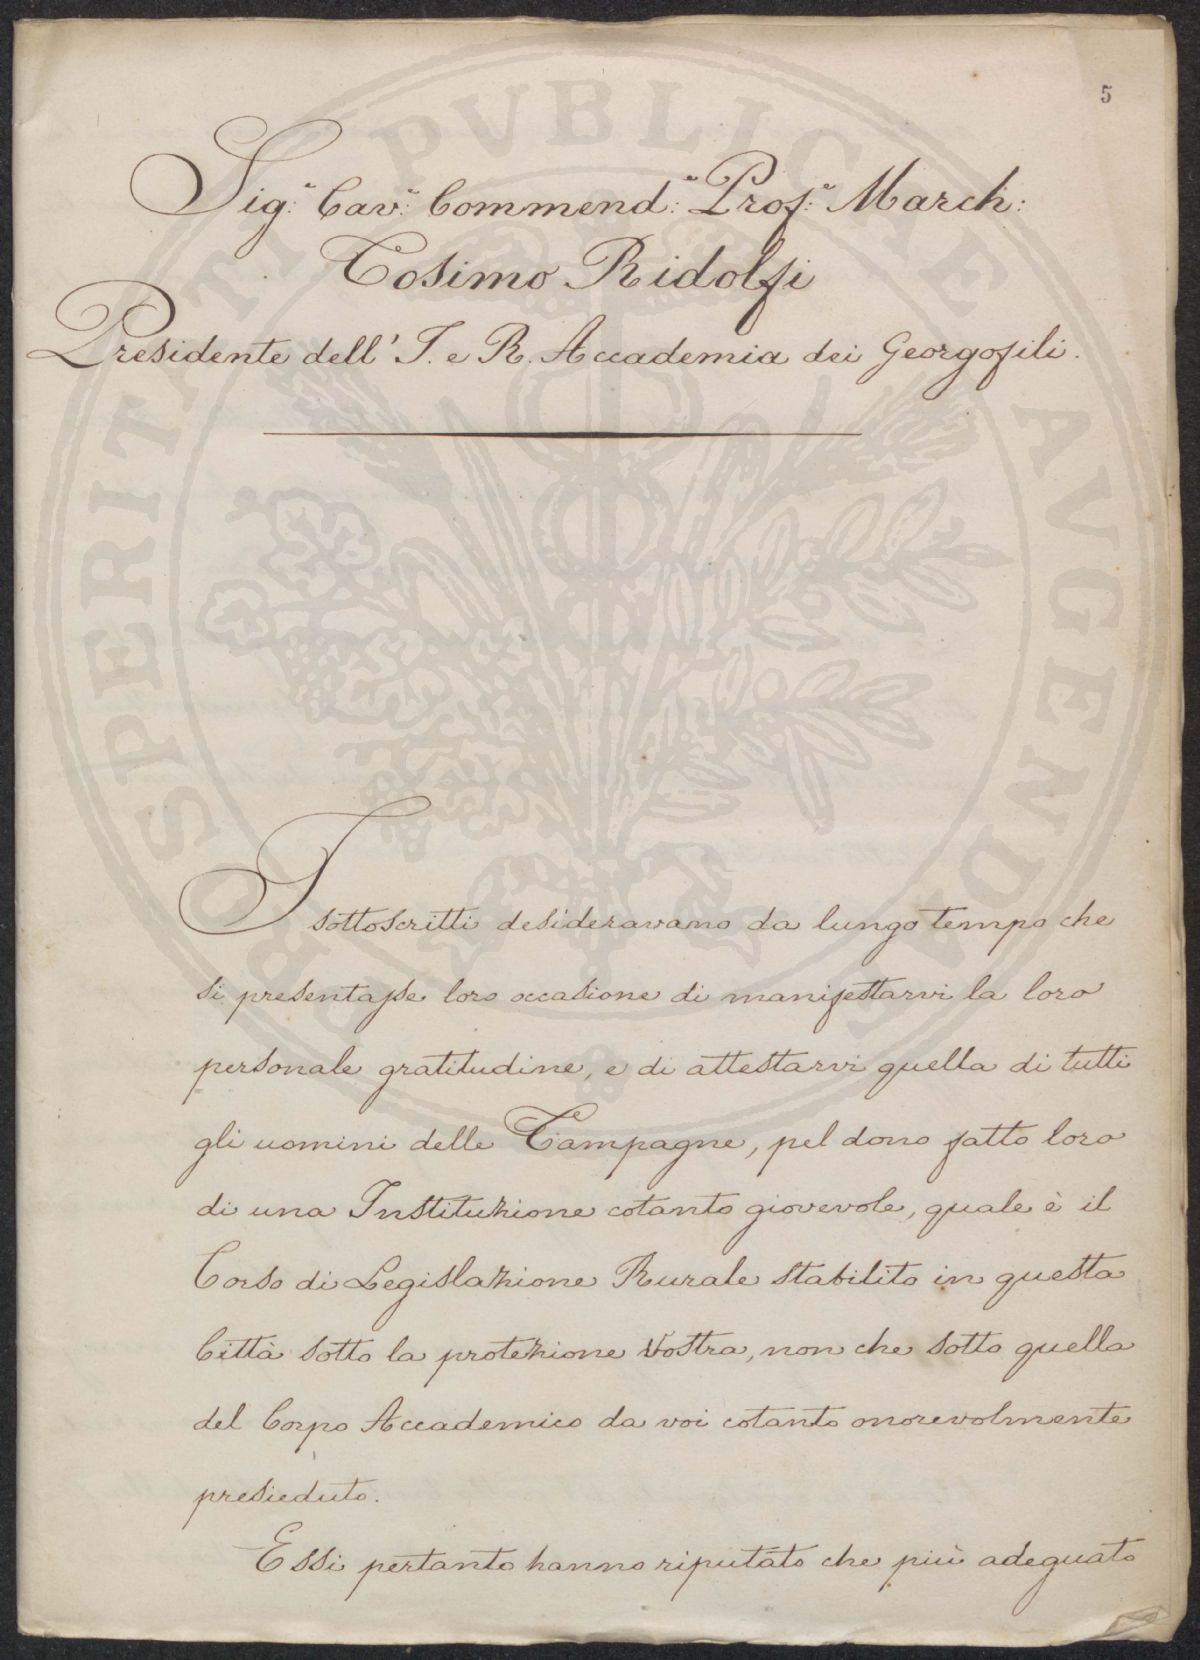 5
Sig.r Cav.r Commend.r Prof.r March:
Cosimo Ridolfi
Presidente dell' I. e R. Accademia dei Georgofili.
I sottoscritti desideravano da lungo tempo che
si presentasse loro occasione di manifestarvi la loro
personale gratitudine, e di attestarvi quella di tutti
gli uomini delle Campagne, pel dono fatto loro
di una Instituzione cotanto giovevole, quale è il
Corso di Legislazione Rurale stabilito in questa
Città sotto la protezione Vostra, non che sotto quella
del Corpo Accademico da voi cotanto onorevolmente
presieduto.
Essi pertanto hanno riputato che più adeguato
PROSPERITATI PVBLICAE AVGENDAE